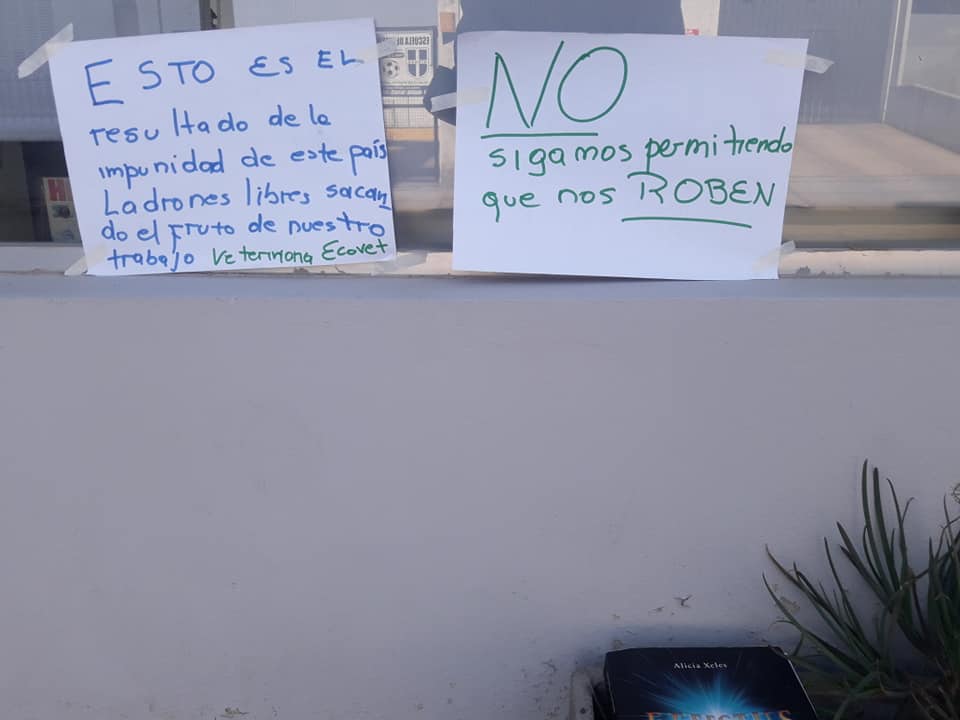 ESTO ES EL
resultado de la
impunidad de este país
Ladrones libres sacan
do el fruto de nuestro
trabajo Veterinoria Ecovet
NO
sigamos permitiendo
que nos ROBEN
ESCUELA DE
Alicia Xeles